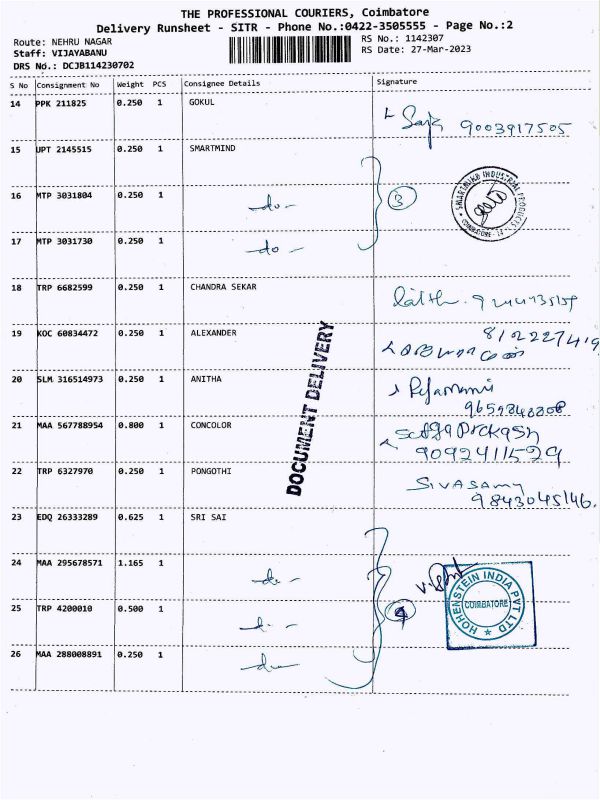 THE PROFESSIONAL COURIERS, Coimbatore
Delivery Runsheet - SITR - Phone No.:0422-3505555 - Page No.:2
Route: NEHRU NAGAR
Staff: VIJAYABANU
DRS No.: DCJB114230702
RS No.: 1142307
RS Date: 27-Mar-2023
S No Consignment No Weight PCS Consignee Details Signature
14 PPK 211825 0.250 1 GOKUL 9003917505
15 UPT 2145515 0.250 1 SMARTMIND
16 MTP 3031804 0.250 1 -do- 3
17 MTP 3031730 0.250 1 -do-
SMARTMIND INDUSTRIAL PRODUCTS
COIMBATORE
18 TRP 6682599 0.250 1 CHANDRA SEKAR
19 KOC 60834472 0.250 1 ALEXANDER
20 SLM 316514973 0.250 1 ANITHA
21 MAA 567788954 0.800 1 CONCOLOR
9092411529
22 TRP 6327970 0.250 1 PONGOTHI SIVASAMY
9843045146.
DOCUMENT DELIVERY
23 EDQ 26333289 0.625 1 SRI SAI
24 MAA 295678571 1.165 1 -do-
25 TRP 4200010 0.500 1
26 MAA 288008891 0.250 1 -do-
HOHENSTEIN INDIA PVT LTD
COIMBATORE